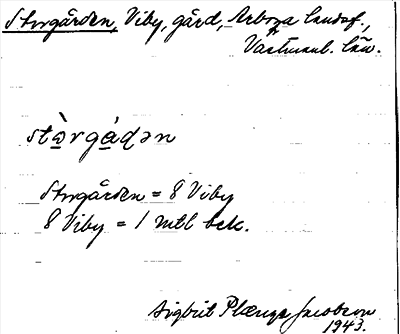 Storgården, Viby, gård, Arboga landsf.,
Västmanl. län.
stɷ̀rgá̱ḍən
Storgården = 8 Viby
8 Viby = 1 mtl bek.
Sigbrit Plænge Jacobson
1943.